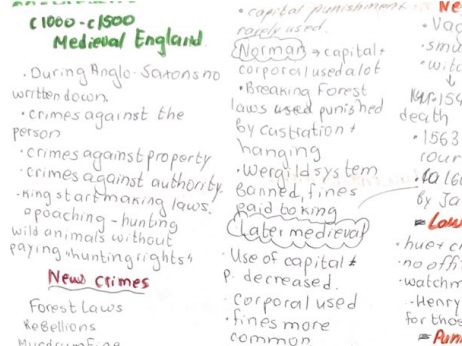 c1000-c1500
Medieval England
· During Anglo-Saxons no
written down.
· crimes against the
person
· crimes against property
· crimes against authority.
· King start making laws.
· poaching - hunting
wild animals without
paying "hunting rights"
New crimes
Forest Laws
Rebellions
Murdrum Fine
· capital punishment
rarely used.
Norman → capital +
corporal used a lot
· Breaking Forest
laws used punished
by castration +
hanging
· Wergild system
banned, fines
paid to king
Later medieval
· Use of capital
p. decreased.
· corporal used
· fines more
common
Ne
· Vag
· smu
· witc
↓
154
death
· 1563
cour
by Ja
Law
· hue + c
· no offi
· watchm
· Henry
for thos
Pun